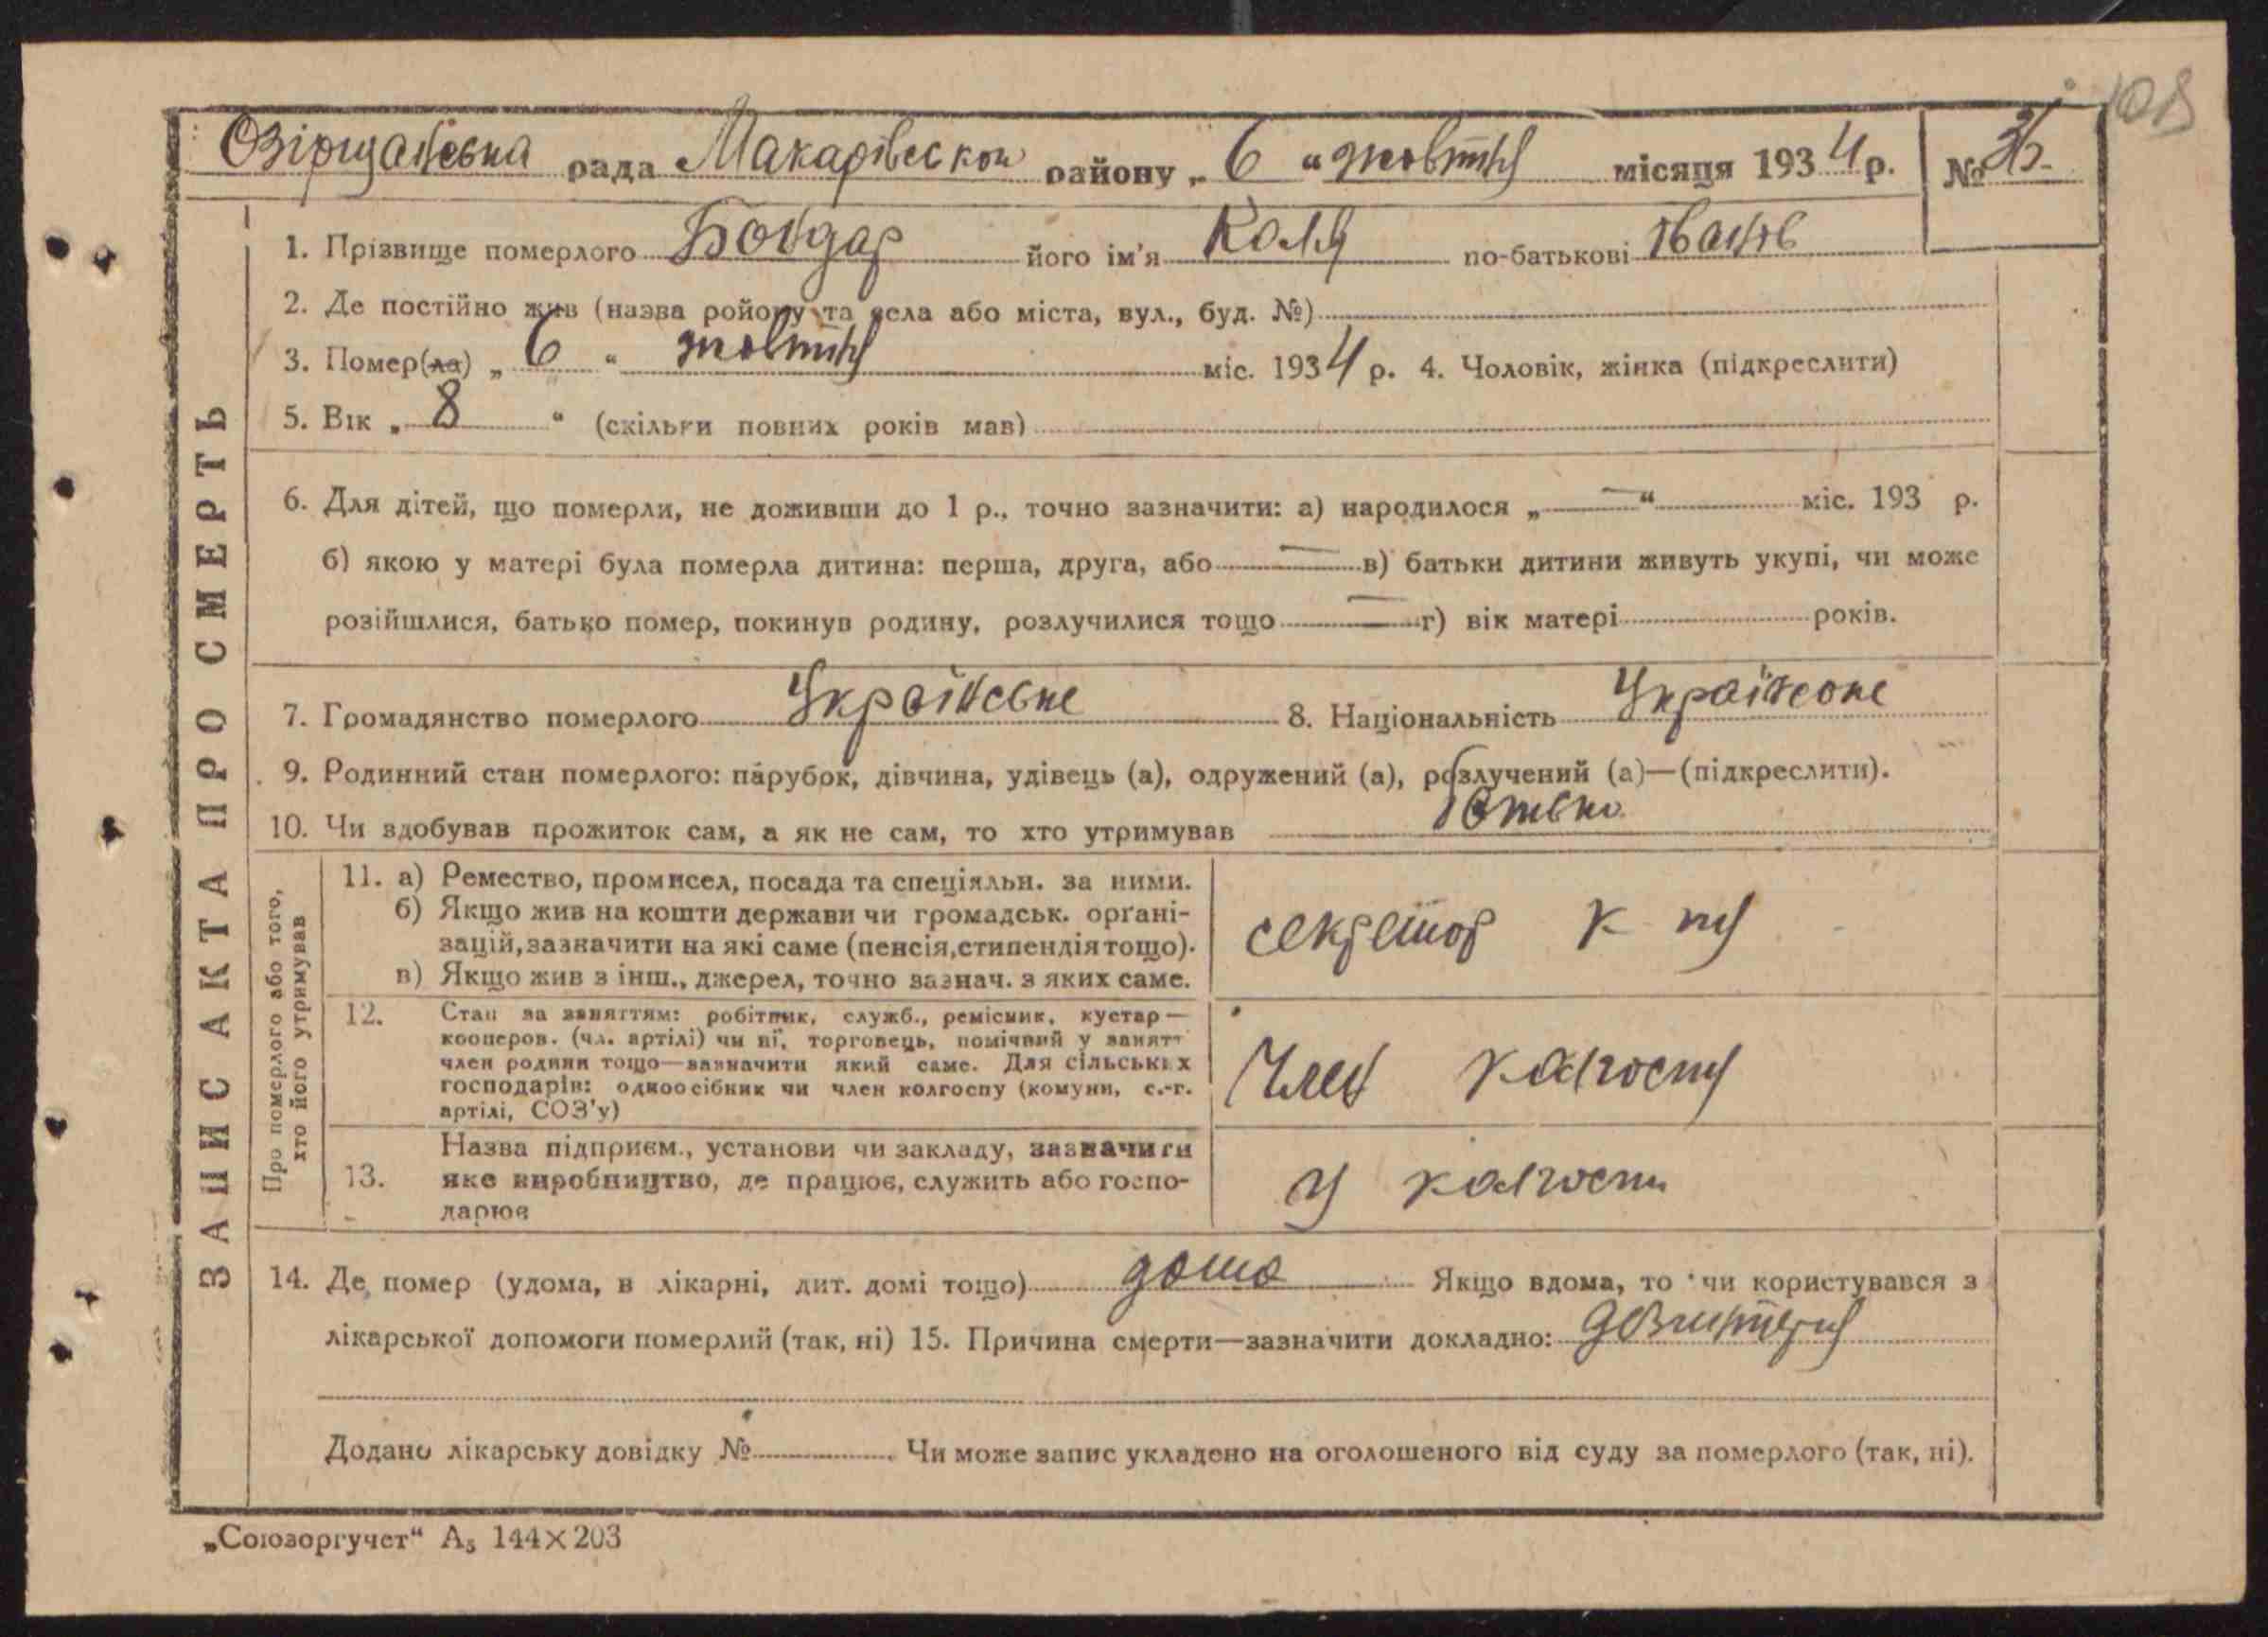 108
Озірщанська рада Макарівської району „ 6 “ жовтня місяця 1934 р. № 36.
1. Прізвище померлого Бондар його ім'я Коля по-батькові Іванов
2. Де постійно жив (назва ройону та села або міста, вул., буд. №)
3. Помер(ла) „ 6 “ жовтня міс. 1934 р. 4. Чоловік, жінка (підкреслити)
5. Вік „ 8 “ (скільки повних років мав)
6. Для дітей, що померли, не доживши до 1 р., точно зазначити: а) народилося „ — “ міс. 193 р.
б) якою у матері була померла дитина: перша, друга, або — в) батьки дитини живуть укупі, чи може
розійшлися, батько помер, покинув родину, розлучилися тощо — г) вік матері років.
7. Громадянство померлого Українське 8. Національність
9. Родинний стан померлого: парубок, дівчина, удівець (а), одружений (а), розлучений (а)—(підкреслити).
10. Чи здобував прожиток сам, а як не сам, то хто утримував батько
ЗАПИС АКТА ПРО СМЕРТЬ
Про померлого або того,
хто його утримував
11. а) Ремество, промисел, посада та спеціяльн. за ними.
б) Якщо жив на кошти держави чи громадськ. орґані-
зацій, зазначити на які саме (пенсія, стипендія тощо).
в) Якщо жив з інш., джерел, точно зазнач. з яких саме.
секретар
12. Стан за заняттям: робітник, служб., ремісник, кустар—
кооперов. (чл. артілі) чи ні, торговець, помічний у занятт
член родини тощо—зазначити який саме. Для сільських
господарів: одноосібник чи член колгоспу (комуни, с.-г.
артілі, СОЗ'у)
Член колгоспу
13. Назва підприєм., установи чи закладу, зазначити
яке виробництво, де працює, служить або госпо-
дарює
у колгоспі
14. Де помер (удома, в лікарні, дит. домі тощо) дома Якщо вдома, то чи користувався з
лікарської допомоги померлий (так, ні) 15. Причина смерти—зазначити докладно:
Додано лікарську довідку № Чи може запис укладено на оголошеного від суду за померлого (так, ні).
„Союзоргучет“ А₅ 144×203